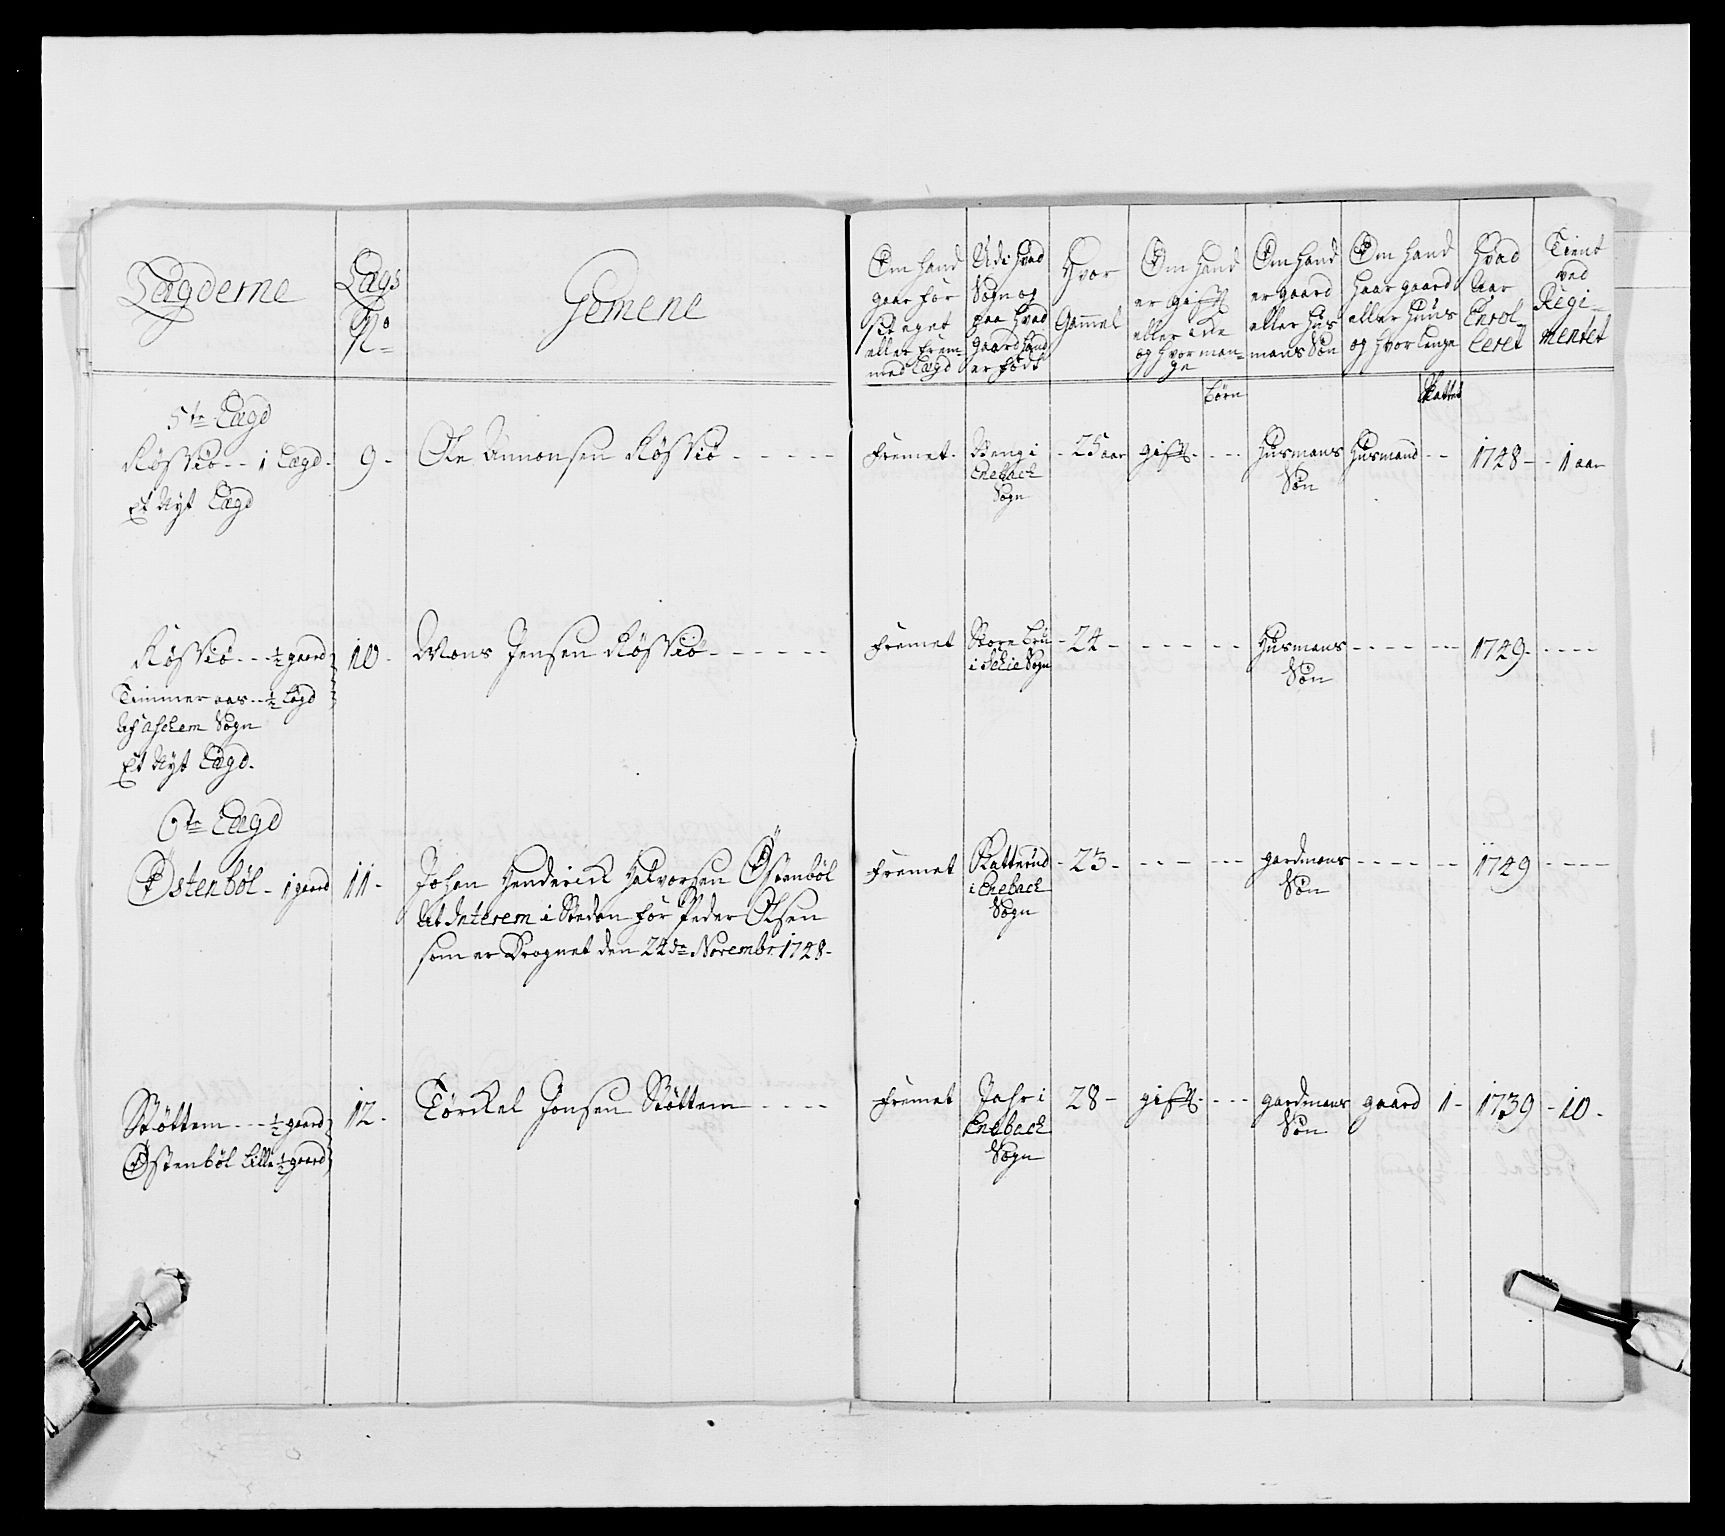 Lægderne
Lægs
No
Gemene
Om hand
gaar for
sit eget
eller frem-
med Lægd
Udi hvad
Sogn og
paa hvad
gaard hand
er født
Hvor
Gammel
Om hand
er gift
eller
og hvor man-
ge
børn
Om hand
er gaard
eller hus
mans Søn
Om hand
haar gaard
eller huus
og hvor lenge
Hvad
Aar
Enrol-
leret
Tient
ved
Regi-
mentet
5te Lægd
Røssiø - - 1 Lægd -
Et Nyt Lægd
9 -
Ole Amonsen Røssiø - - - - -
fremet -
i
Enebach
Sogn
- 25 aar
gift - - - -
Husmans
Søn
Husmand - -
1748 -
- 1 aar
Røssiø - - - ½ gaard
Timmer aas - - ½ Lægd
Af aschem Sogn
Et Nyt Lægd -
10 -
Mons Jensen Røssiø - - - - - -
fremet
Store
i Sogn
- 24 - - - - - - -
Husmans
Søn
- - - - - - -
1749 - - - - -
6te Lægd
Østenbøl - 1 gaard
11 -
Johan Henderich Halvorsen Østenbøl
At Interem i Steden for Peder Olsen
som er Drognet den 24de Novembr 1748 -
fremet
Ratterud
i Enebach
Sogn
- 23 - - - - - - -
gardmans
Søn
- - - - - -
1749 - - - -
Støttem - - - ½ gaard
Østenbøl Lille ½ gaard
12 -
Törchel Jonsen Støttem - - - -
fremet
Jahr i
Enebach
Sogn
28 -
gift - - - -
gardmans
Søn
gaard
1 -
1739
- 10 -